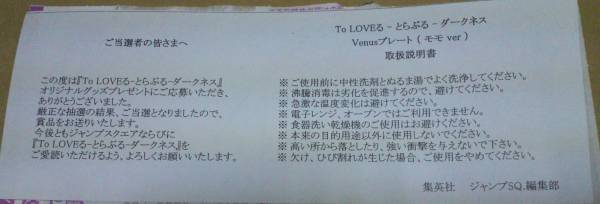 ご当選者の皆さまへ
この度は『To LOVEる-とらぶる-ダークネス』
オリジナルグッズプレゼントにご応募いただき、
ありがとうございました。
厳正な抽選の結果、ご当選となりましたので、
賞品をお送りいたします。
今後ともジャンプスクエアならびに
『To LOVEる-とらぶる-ダークネス』を
ご愛読いただけるよう、よろしくお願いいたします。
To LOVEる - とらぶる - ダークネス
Venusプレート ( モモ ver )
取扱説明書
※ ご使用前に中性洗剤とぬるま湯でよく洗浄してください。
※ 沸騰消毒は劣化を促進するので、避けてください。
※ 急激な温度変化は避けてください。
※ 電子レンジ、オーブンではご利用できません。
※ 食器洗い乾燥機のご使用はお避けください。
※ 本来の目的用途以外に使用しないでください。
※ 高い所から落としたり、強い衝撃を与えないで下さい。
※ 欠け、ひび割れが生じた場合、ご使用をやめてください。
集英社 ジャンプSQ.編集部